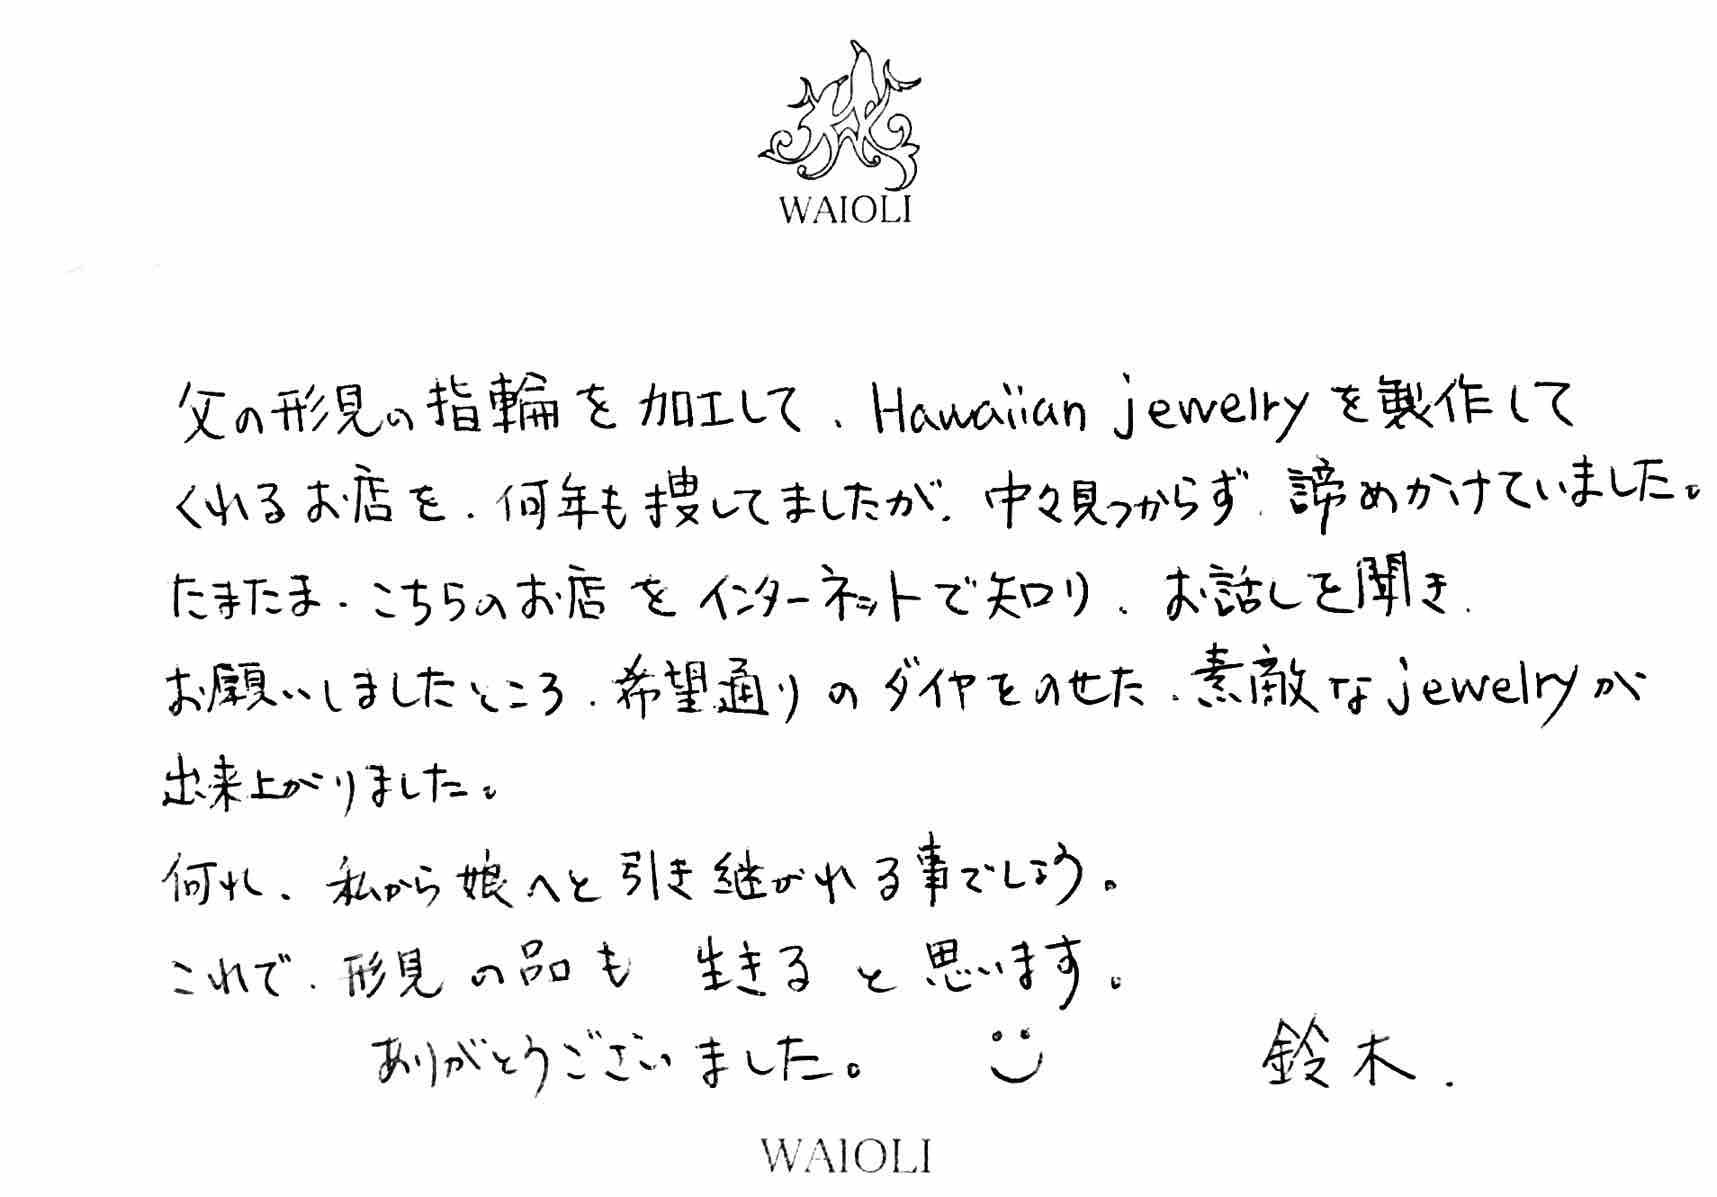 WAIOLI
父の形見の指輪を加工して、Hawaiian jewelryを製作して
くれるお店を、何年も捜してましたが、中々見つからず、諦めかけていました。
たまたま、こちらのお店をインターネットで知り、お話しを聞き、
お願いしましたところ、希望通りのダイヤをのせた、素敵なjewelryが
出来上がりました。
何れ、私から娘へと引き継がれる事でしょう。
これで、形見の品も 生きると思います。
ありがとうございました。 鈴木.
WAIOLI